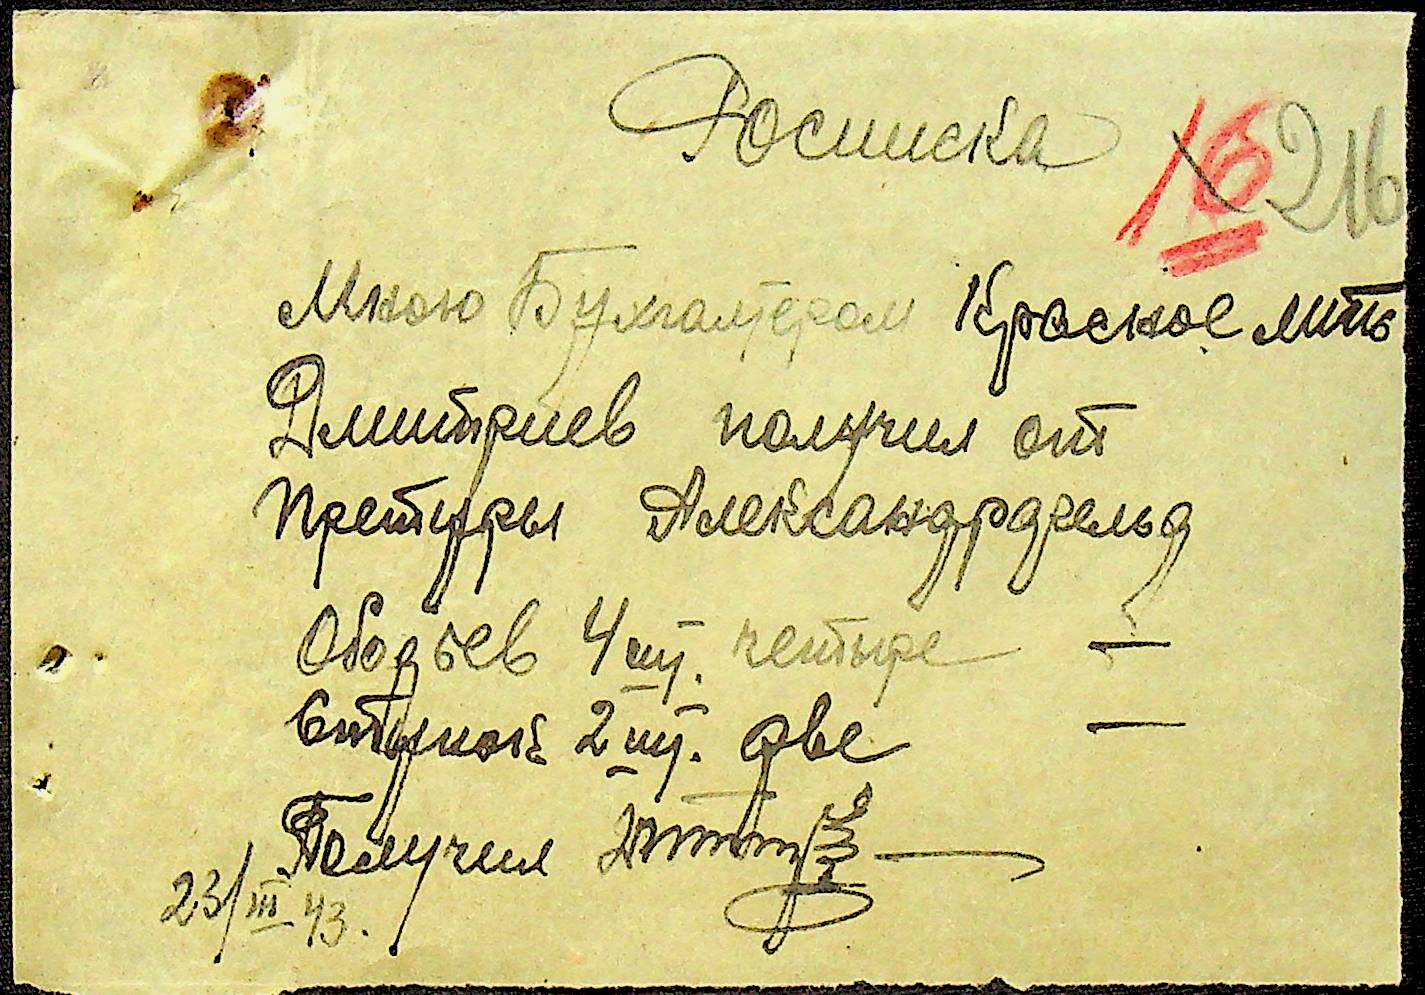 Росписка
16 216
Мною Бухгалтером Красное лить
Дмитриев получил от
Претуры Александрфельд
Ободьев 4 шт. четыре —
Ступок 2 шт. две —
Получил
23/III 43.